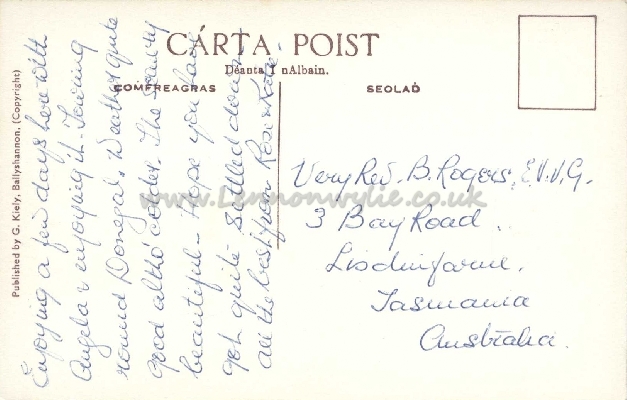 CÁRTA POIST
Déanta I nAlbain.
COMFREAGRAS
SEOLAḊ
Published by G. Kiely, Ballyshannon, (Copyright)
Enjoying a few days here with
Angela & enjoying it. Touring
round Donegal. Weather quite
good altho' colder. The scenery
beautiful - Hope you have
got quite settled down
all the best from Rose & Kate
Very Rev. B. Rogers, E.V.V.G.
3 Bay Road
Tasmania
Australia.
www.Lennonwylie.co.uk